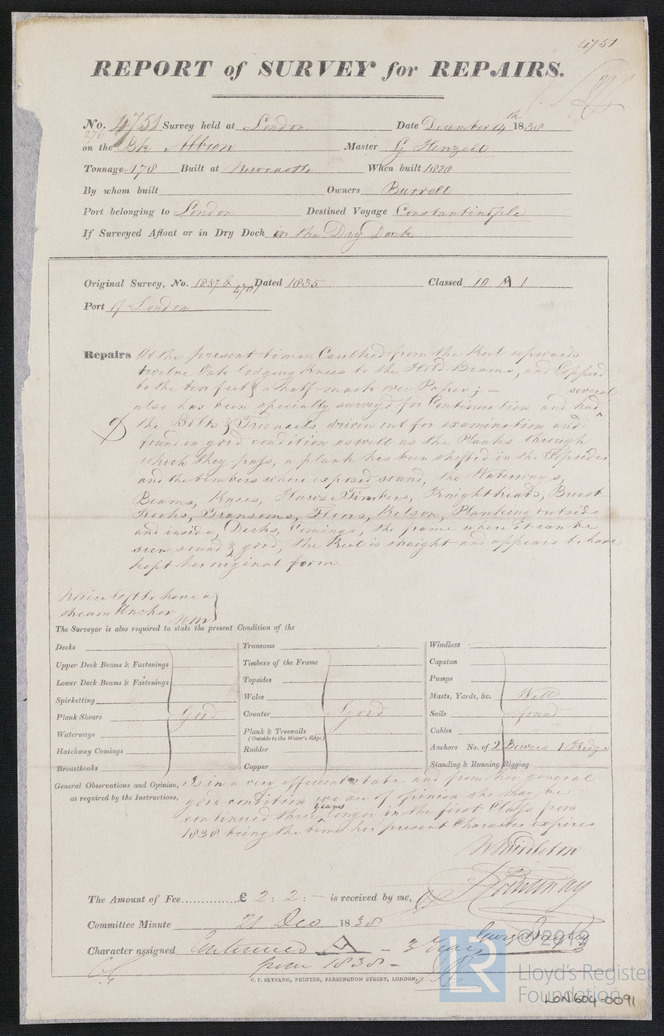 4751
REPORT of SURVEY for REPAIRS.
No. 4751 Survey held at London Date December 14th 1838
276 on the Bk Albion Master G Henzell
Tonnage 178 Built at Newcastle When built 1828
By whom built Owners Burrell
Port belonging to London Destined Voyage Constantinople
If Surveyed Afloat or in Dry Dock in the Dry Dock
Original Survey, No. Dated 1835 Classed 10 A 1
Port of London
Repairs At the present time Caulked from the Keel upwards
twelve Oak lodging Knees to the Hold Beams, and Coppered
to the ten feet & a half mark over Paper; —
also has been specially surveyed for Continuation and had several
the Bolts & Treenails driven out for examination and
found in good condition as well as the Planks through
which they pass, a plank has been shifted in the Topsides
and the timbers where exposed sound, the Waterways,
Beams, Knees, Hawse Timbers, Knightheads, Breast
Hooks, Transoms, Floors, Kelson, Planking outside
and inside, Decks, Comings, the frame where it can be
seen sound & good, the Keel is straight and appears to have
kept her original form
Notice left to have a
stream Anchor
The Surveyor is also required to state the present Condition of the
Decks Transoms Windlass
Upper Deck Beams & Fastenings Timbers of the Frame Capstan
Lower Deck Beams & Fastenings Topsides Pumps
Spirketting Wales Masts, Yards, &c. Well
Plank Shears Good Counter Good Sails found
Waterways Plank & Treenails (Outside to the Water's Edge) Cables
Hatchway Comings Rudder Anchors No. of 2 Bowers 1 Kedge
Breasthooks Copper Standing & Running Rigging
General Observations and Opinion, is in a very efficient state and from her general
as required by the Instructions, good condition we are of opinion she may be
continued three years longer in the first Class from
1838 being the time her present Character expires
W Middleton
The Amount of Fee £ 2: 2: — is received by me,
Committee Minute 21 Dec 1838
Character assigned Continued A — 3 Years
from 1838 —
C. F. SEYFANG, PRINTER, FARRINGDON STREET, LONDON.
© 2019
LR
Lloyd's Register
Foundation
LON604-0091